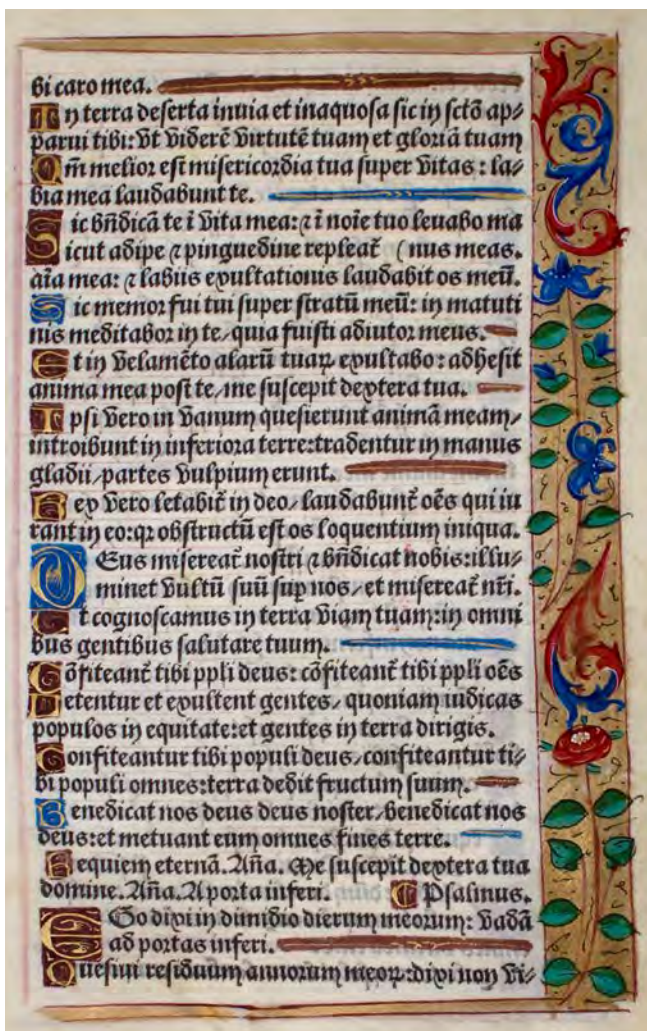 bi caro mea.
In terra deserta inuia et inaquosa sic in sctõ ap⸗
parui tibi: vt viderẽ virtutẽ tuam et gloriã tuam
Qm̃ melior est misericordia tua super vitas : la⸗
bia mea laudabunt te.
Sic bñdicã te ĩ vita mea: ⁊ ĩ noĩe tuo leuabo ma
Sicut adipe ⁊ pinguedine repleat̃ (nus meas.
aĩa mea: ⁊ labiis exultationis laudabit os meũ.
Sic memor fui tui super stratũ meũ: in matuti
nis meditabor in te, quia fuisti adiutor meus.
Et in velamẽto alarũ tuaꝝ exultabo: adhesit
anima mea post te, me suscepit dextera tua.
Ipsi vero in vanum quesierunt animã meam,
introibunt in inferiora terre: tradentur in manus
gladii, partes vulpium erunt.
Rex vero letabit̃ in deo, laudabunt̃ oẽs qui iu
rant in eo: qꝛ obstructũ est os loquentium iniqua.
DEus misereat̃ nostri ⁊ bñdicat nobis: illu⸗
minet vultũ suũ sup nos, et misereat̃ nr̃i.
Et cognoscamus in terra viam tuam: in omni
bus gentibus salutare tuum.
Cõfiteant̃ tibi ppli deus: cõfiteant̃ tibi ppli oẽs
Letentur et exultent gentes, quoniam iudicas
populos in equitate: et gentes in terra dirigis.
Confiteantur tibi populi deus, confiteantur ti⸗
bi populi omnes: terra dedit fructum suum.
Benedicat nos deus deus noster, benedicat nos
deus: et metuant eum omnes fines terre.
Requiem eternã. Aña. Me suscepit dextera tua
domine. Aña. A porta inferi. Psalmus.
EGo dixi in dimidio dierum meorum: vadã
ad portas inferi.
Quesiui residuum annorum meoꝝ: dixi non vi⸗